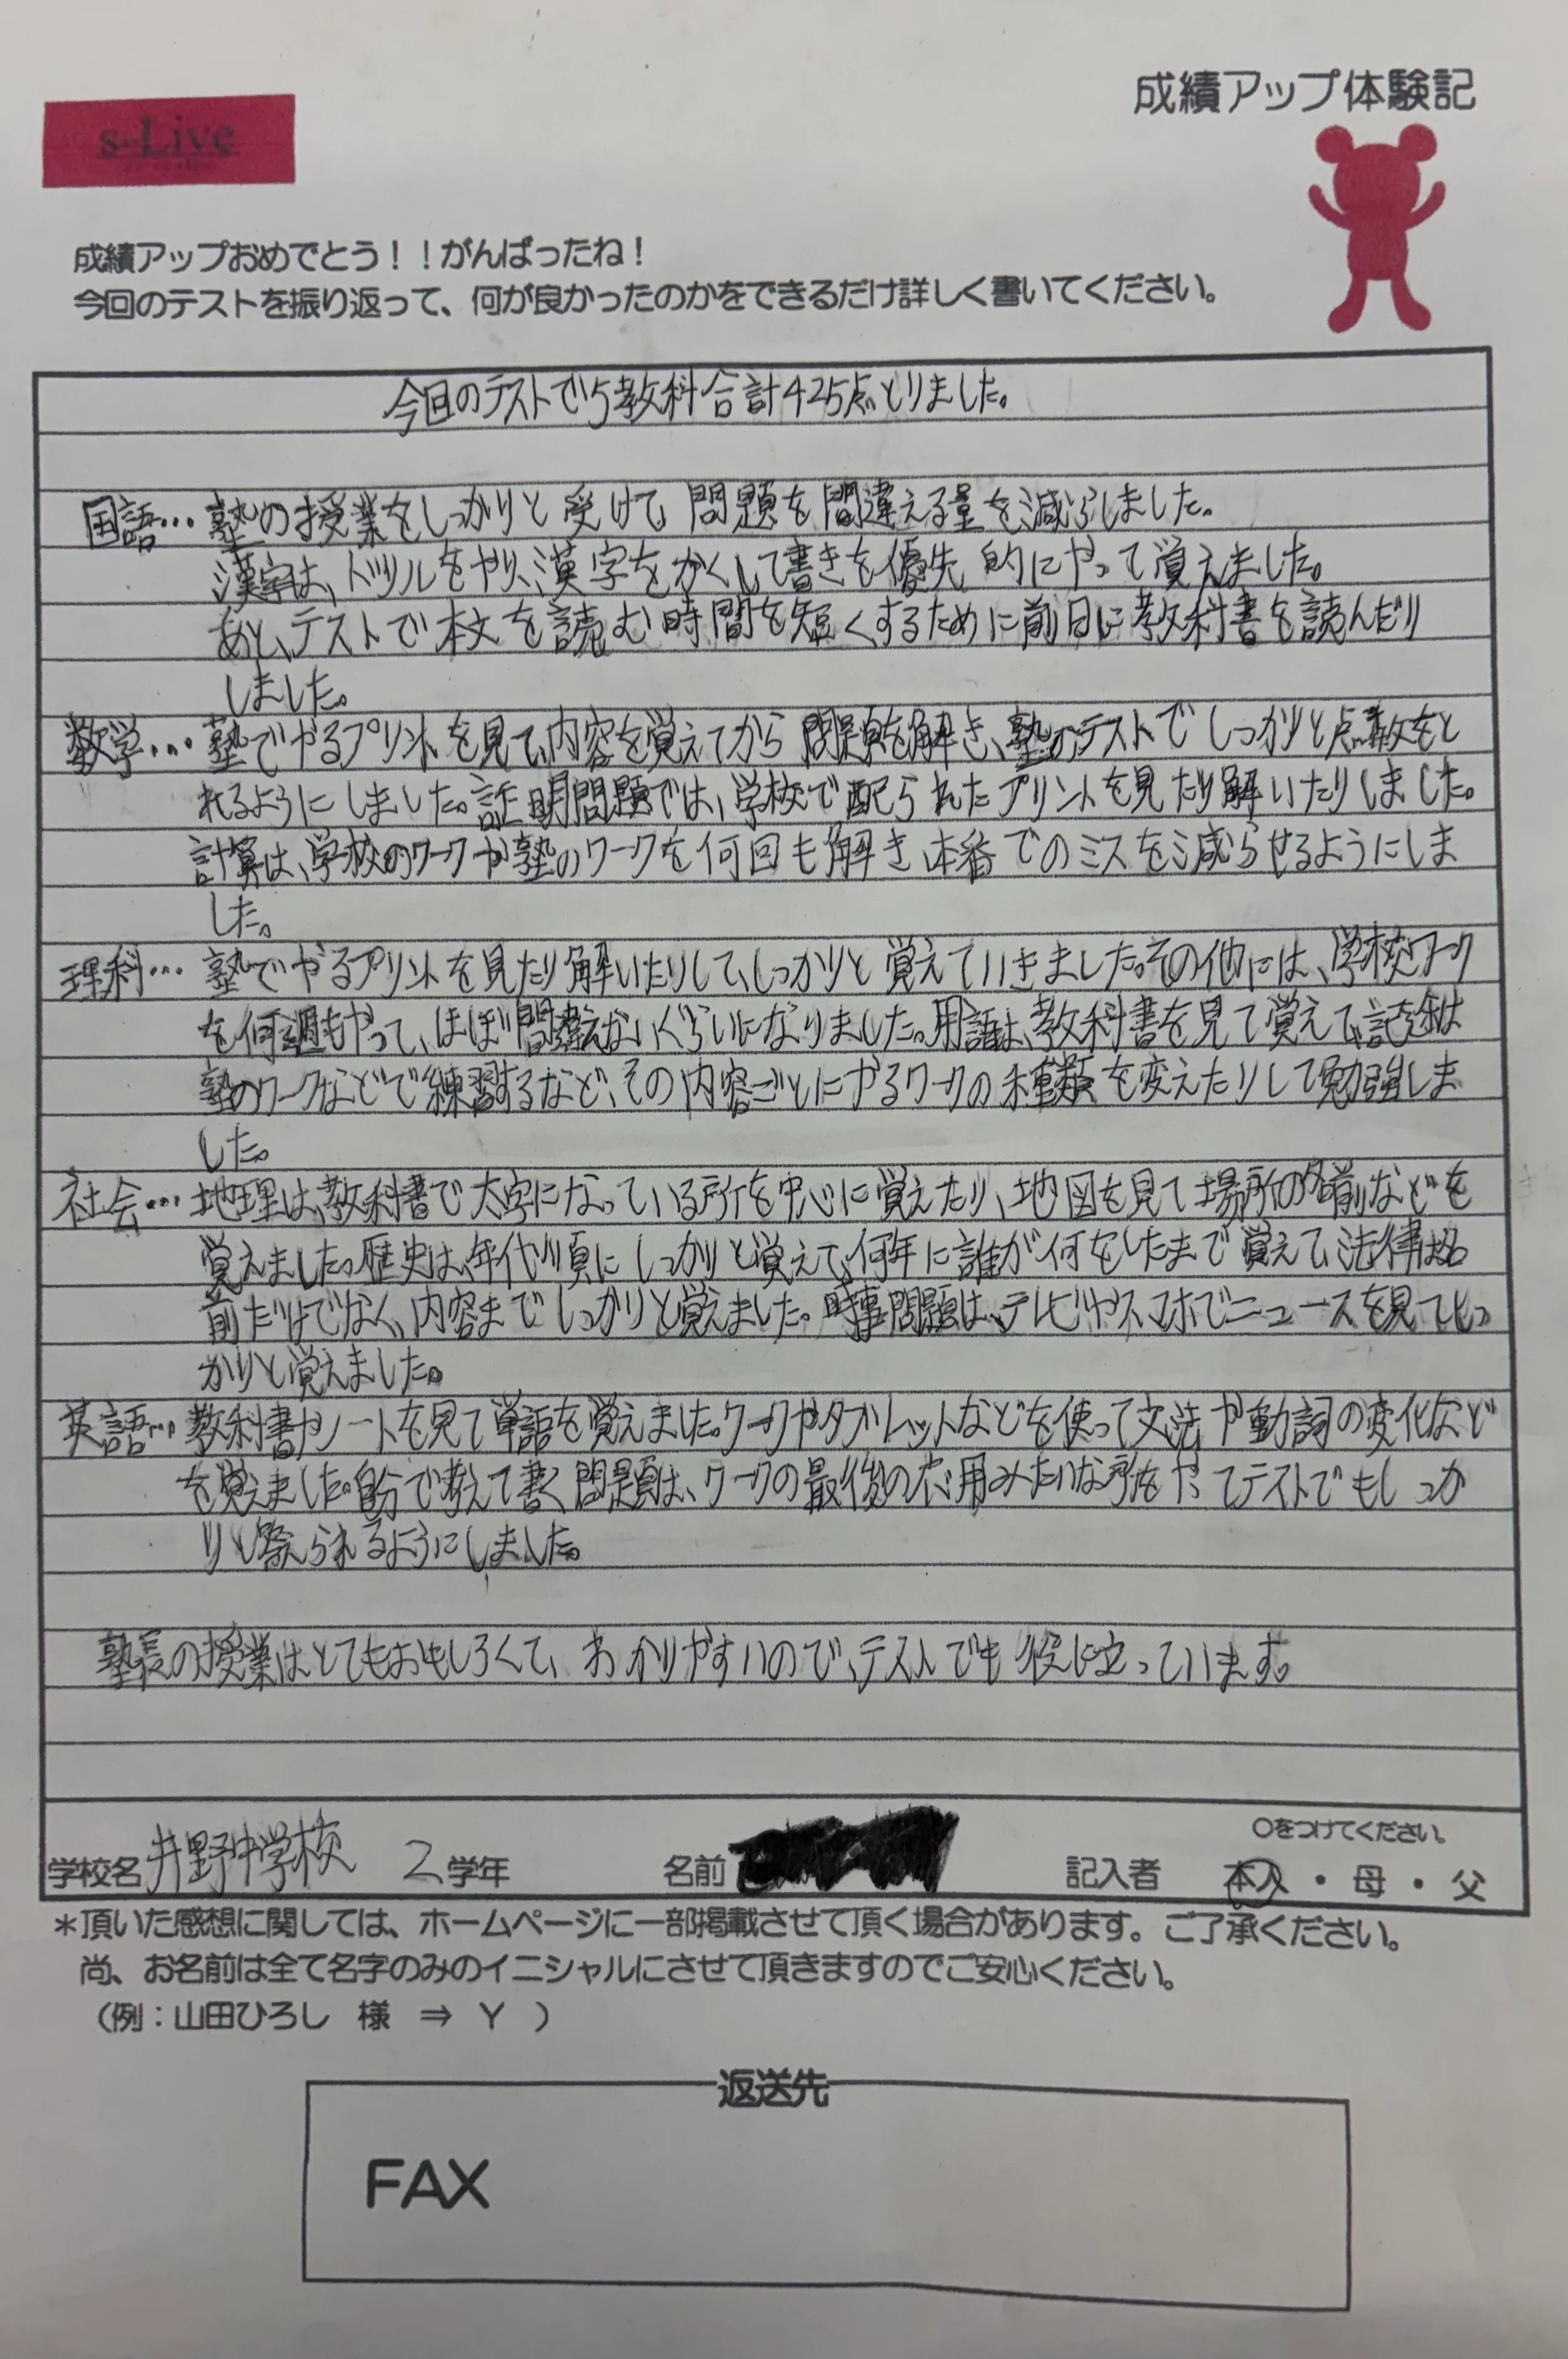 成績アップ体験記
s-Live
成績アップおめでとう！！がんばったね！
今回のテストを振り返って、何が良かったのかをできるだけ詳しく書いてください。
今回のテストで5教科合計425点とりました。
国語…塾の授業をしっかりと受けて、問題を間違える量を減らしました。
漢字は、ドリルをやり、漢字をかくして書きを優先的にやって覚えました。
あと、テストで本文を読む時間を短くするために前日に教科書を読んだり
しました。
数学…塾でやるプリントを見て、内容を覚えてから問題を解き、塾のテストでしっかりと点数をと
れるようにしました。証明問題では、学校で配られたプリントを見たり解いたりしました。
計算は、学校のワークや塾のワークを何回も解き、本番でのミスを減らせるようにしま
した。
理科…塾でやるプリントを見たり解いたりして、しっかりと覚えていきました。その他には、学校ワーク
を何週もやって、ほぼ間違えないぐらいになりました。用語は、教科書を見て覚えて、記述は
塾のワークなどで練習するなど、その内容ごとにやるワークの種類を変えたりして勉強しま
した。
社会…地理は、教科書で太字になっている所を中心に覚えたり、地図を見て場所の名前などを
覚えました。歴史は、年代順にしっかりと覚えて、何年に誰が何をしたまで覚えて、法律は名
前だけでなく、内容までしっかりと覚えました。時事問題は、テレビやスマホでニュースを見てしっ
かりと覚えました。
英語…教科書やノートを見て単語を覚えました。ワークやタブレットなどを使って文法や動詞の変化など
を覚えました。自分で考えて書く問題は、ワークの最後の応用みたいな所をやってテストでもしっか
りと答えられるようにしました。
塾長の授業はとてもおもしろくて、わかりやすいので、テストでも役に立っています。
○をつけてください。
学校名 井野中学校 2 学年 名前 記入者 本人・母・父
＊頂いた感想に関しては、ホームページに一部掲載させて頂く場合があります。ご了承ください。
尚、お名前は全て名字のみのイニシャルにさせて頂きますのでご安心ください。
（例：山田ひろし 様 ⇒ Y ）
返送先
FAX